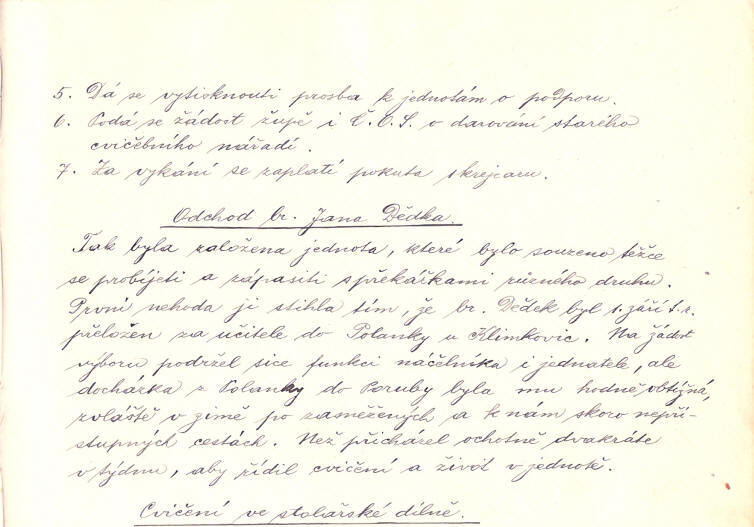 5. Dá se vytisknouti prosba k jednotám o podporu.
6. Podá se žádost župě i Č.O.S. o darování starého
cvičebního nářadí.
7. Za vykání se zaplatí pokuta
Odchod br. Jana Dědka.
Tak byla založena jednota, které bylo souzeno těžce
se probíjeti a zápasiti s překážkami různého druhu.
První nehoda ji stihla tím, že br. Dědek byl 1. září t.r.
přeložen za učitele do Polanky u Klimkovic. Na žádost
výboru podržel sice funkci náčelníka i jednatele, ale
docházka z Polanky do Poruby byla mu hodně obtížná,
zvláště v zimě po zaměžených a k nám skoro nepří-
stupných cestách. Než přicházel ochotně dvakráte
v týdnu, aby řídil cvičení a život v jednotě.
Cvičení ve stolařské dílně.